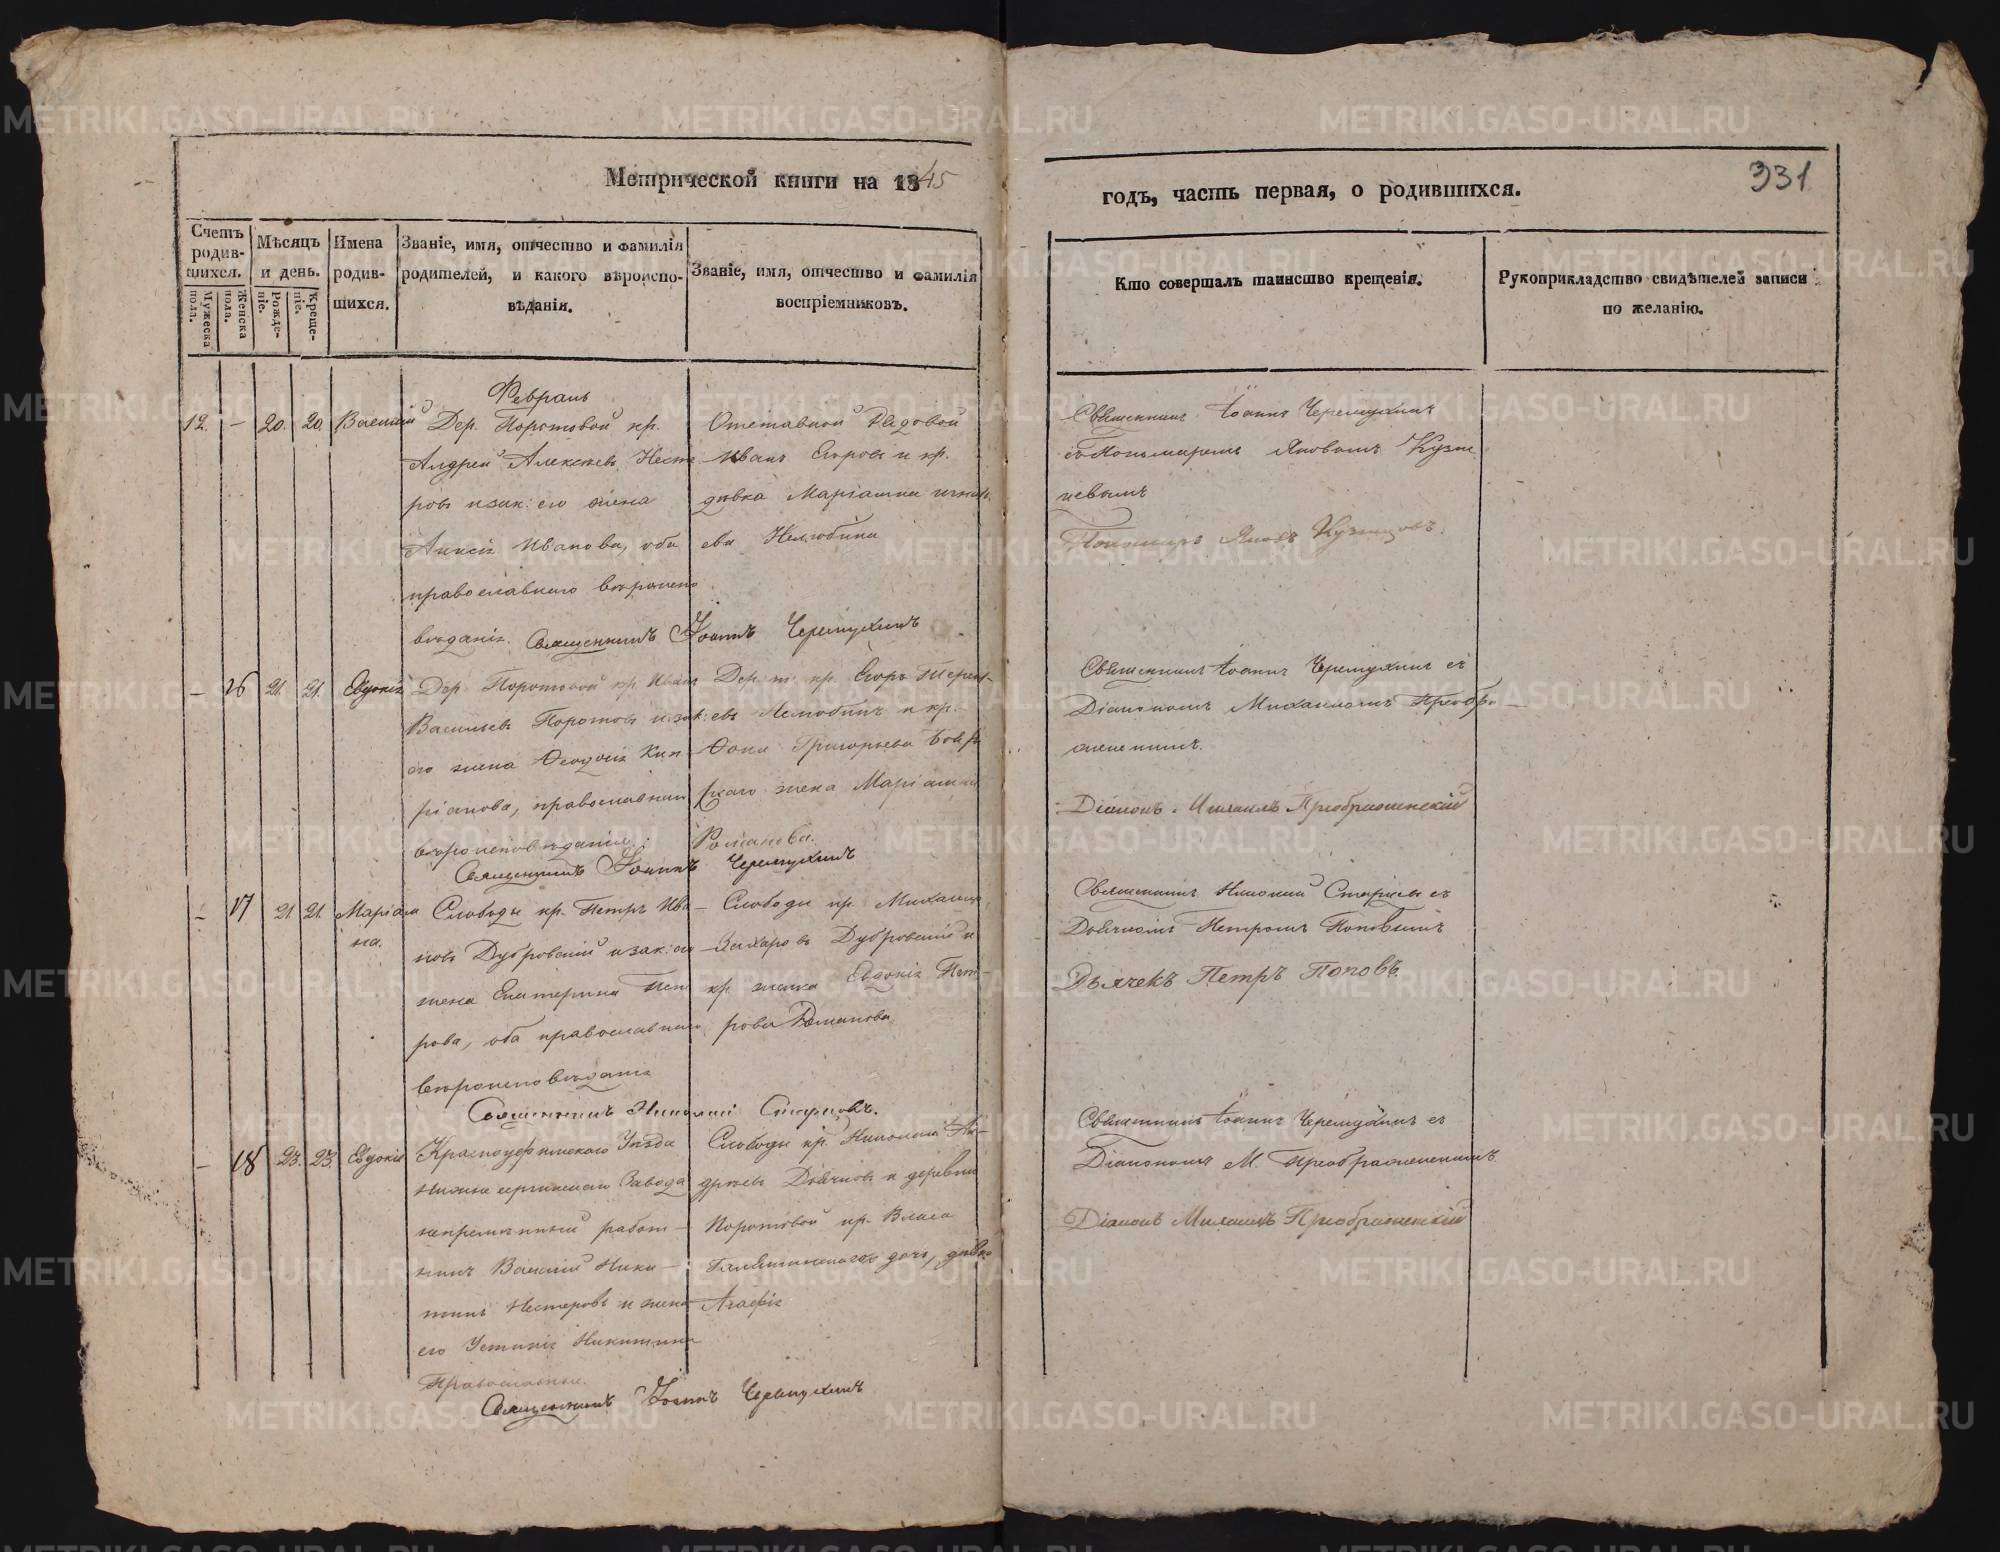 Метрической книги на 1845
годъ, часть первая, о родившихся.
331
Счетъ родив-шихся.
Мужеска пола.
Женска пола.
Мѣсяцъ и день.
Рожде-ніе.
Креще-ніе.
Имена родив-шихся.
Званіе, имя, отчество и фамилія
родителей, и какого вѣроиспо-
вѣданія.
Званіе, имя, отчество и фамилія
воспріемниковъ.
Кто совершалъ таинство крещенія.
Рукоприкладство свидѣтелей записи
по желанію.
Февраль
12. – 20. 20. Василій
Дер. Поротовой кр.
Андрей Алексѣевъ Несте
ровъ и зак: его жена
Анисія Иванова, оба
православнаго вѣроиспо
вѣданія.
Отставной Рядовой
Иванъ Егоровъ и кр.
дѣвка Маріамна
ева Нелюбина
Священникъ Іоаннъ Черемухинъ
Священникъ Іоаннъ Черемухинъ
съ Пономаремъ Яковомъ Кузне
цовымъ
Пономарь Яковъ Кузнецовъ.
– 16 21. 21. Евдокія
Дер. Поротовой кр Иванъ
Васильевъ Поротовъ и зак:
его жена Феодосія Кип-
ріанова, православнаго
вѣроисповѣданія.
Дер. кр. Егоръ Терент-
евъ Нелюбинъ и кр.
Фоки Григорьева
жена Маріамна
Романова.
Священникъ Іоаннъ Черемухинъ
Священникъ Іоаннъ Черемухинъ съ
Діакономъ Михаиломъ Преобра-
женскимъ.
Діаконъ Михаилъ Преображенскій
– 17 21. 21. Маріам
на.
Слободы кр. Петръ Ива-
новъ Дубровскій и зак: его
жена Екатерина Пет
рова, оба православнаго
вѣроисповѣданія
Слободы кр. Михаилъ
Захаровъ Дубровскій и
кр жена Евдокія Пет-
рова Романова
Священникъ Николай
Священникъ Николай съ
Дьячкомъ Петромъ Поповымъ
Дьячекъ Петръ Поповъ.
– 18 23. 23. Евдокія
Красноуфимскаго Уѣзда
Нижнесергинскаго Завода
непремѣнный работ-
никъ Василій Ники-
тинъ Нестеровъ и жена
его Устинія Никитина
Православные.
Слободы кр. Николай Ан-
дреевъ Дьячковъ и деревни
Поротовой кр. Власа
дочь, дѣвка
Агафія
Священникъ Іоаннъ Черемухинъ
Священникъ Іоаннъ Черемухинъ съ
Діакономъ М. Преображенскимъ
Діаконъ Михаилъ Преображенскій
METRIKI.GASO-URAL.RU